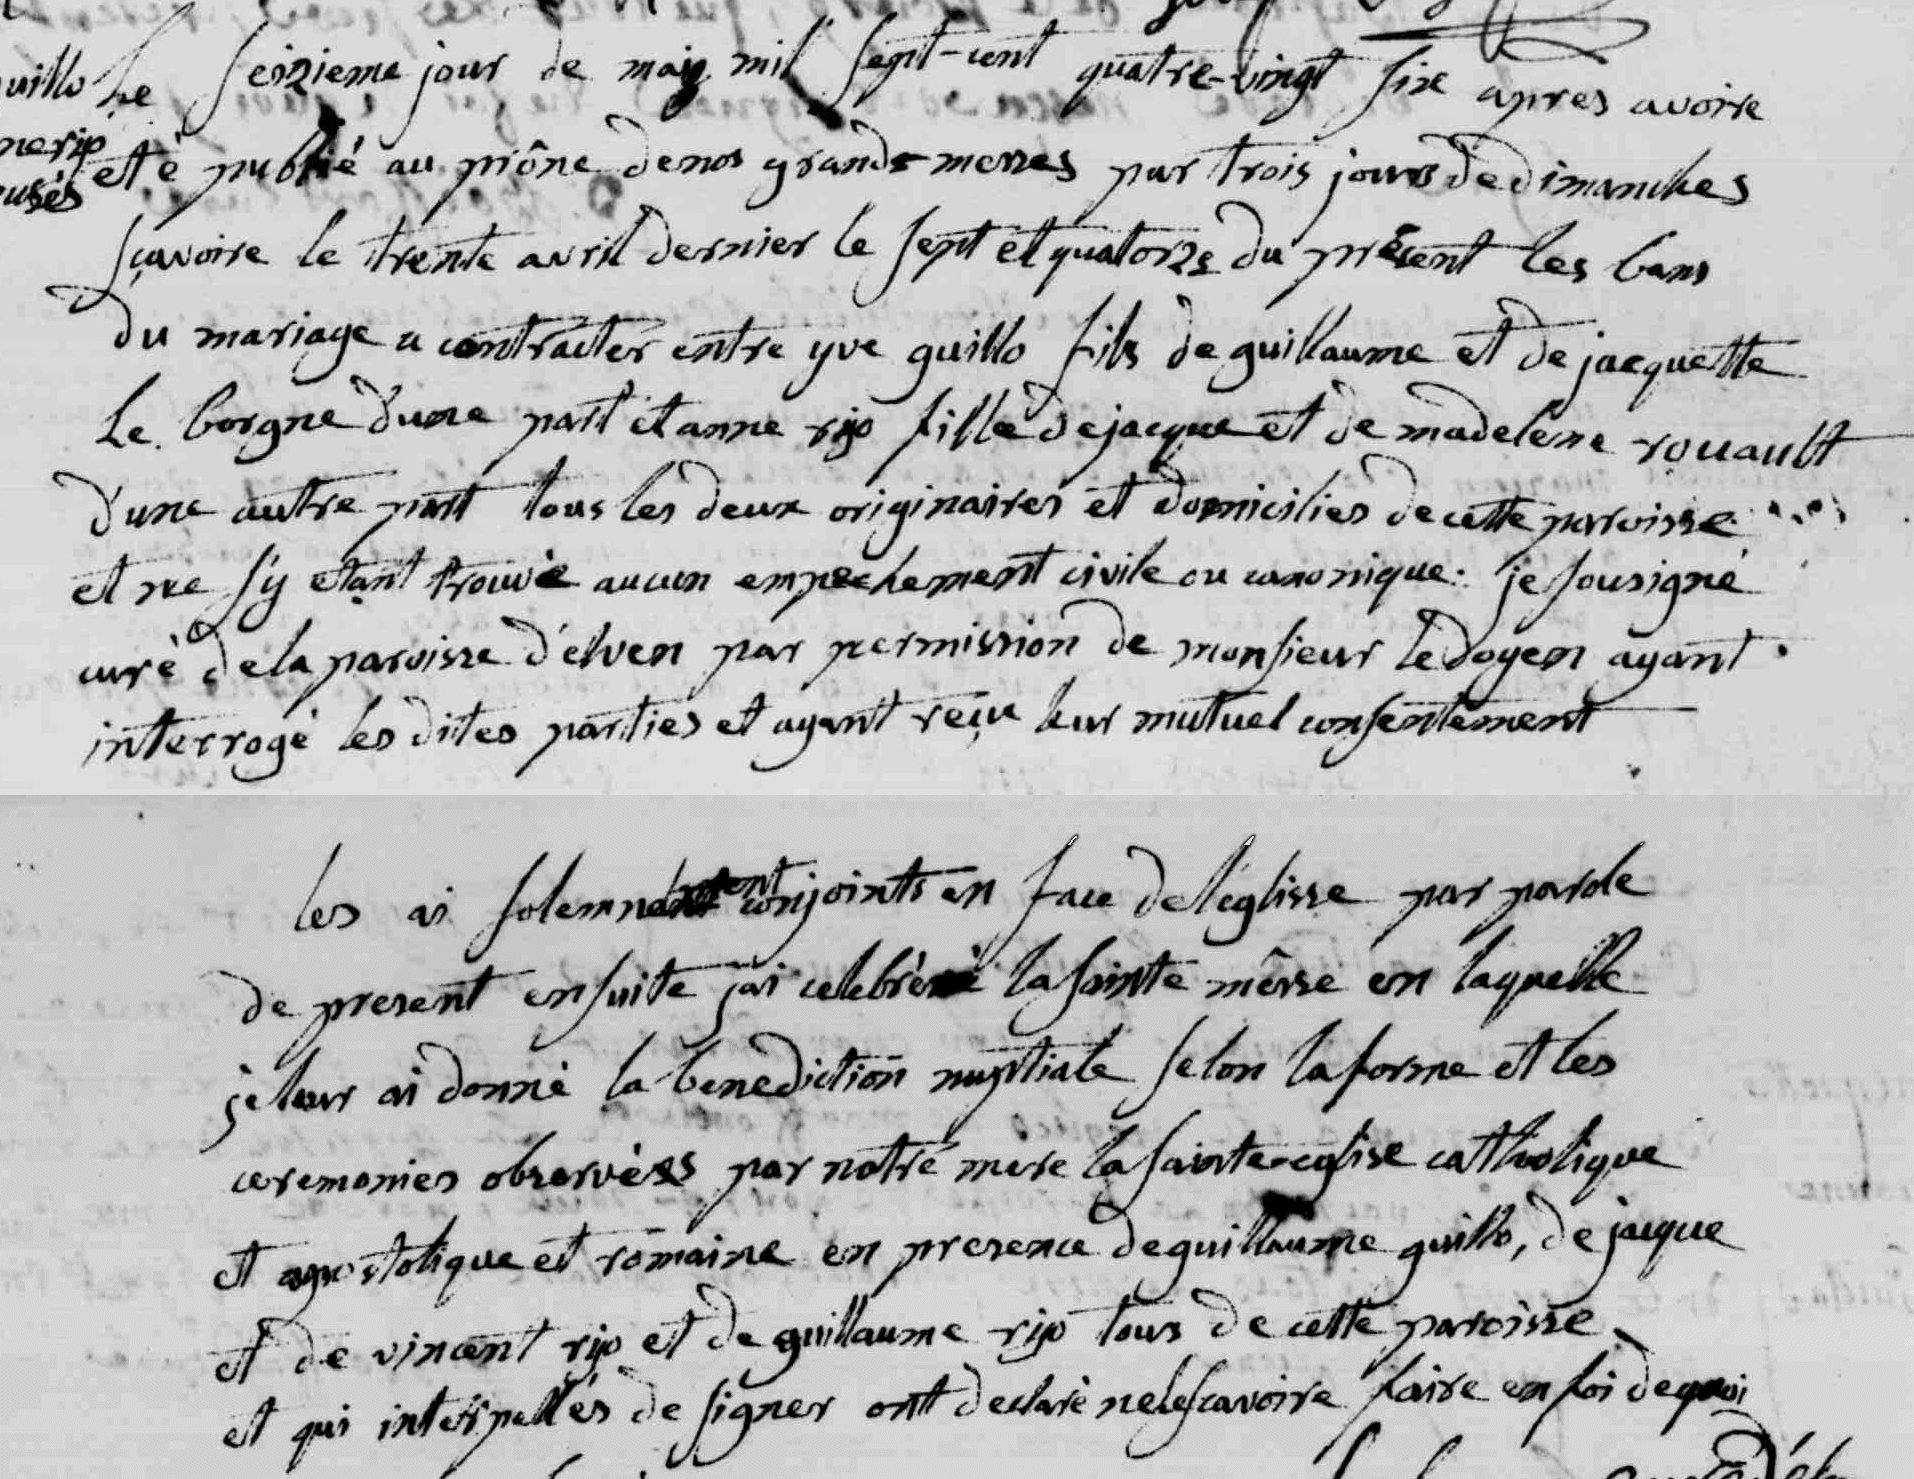 uillo Le seizieme jour de may mil sept-cent quatre-vingt six apres avoire
ne rio eté publié au prône de nos grands-messes par trois jours de dimanches
usés
sçavoire le trente avril dernier le sept et quatorze du présent les bans
du mariage a contracter entre yve guillo fils de guillaume et de jacquette
Le borgne d'une part et anne rio fille de jacque et de madelene rouault
d'une autre part tous les deux originaires et domicilies de cette paroisse
et ne s'y etant trouvé aucun empechement civile ou canonique. je sousigné
curé de la paroisse d'elven par permission de monsieur le doyen ayant
interrogé les dites parties et ayant reçu leur mutuel consentement
les ai solemnelment conjoints en face de l'eglisse par parole
de present ensuite j'ai celebré la sainte mêsse en laquelle
je leur ai donné la benediction nuptiale selon la forme et les
ceremonies observéss par notre mere la sainte-eglise catholique
et apostolique et romaine en presence de guillaume guillo, de jacque
et de vincent rio et de guillaume rio tous de cette paroisse
et qui interpellés de signer ont declaré ne le scavoire faire en foi de quoi